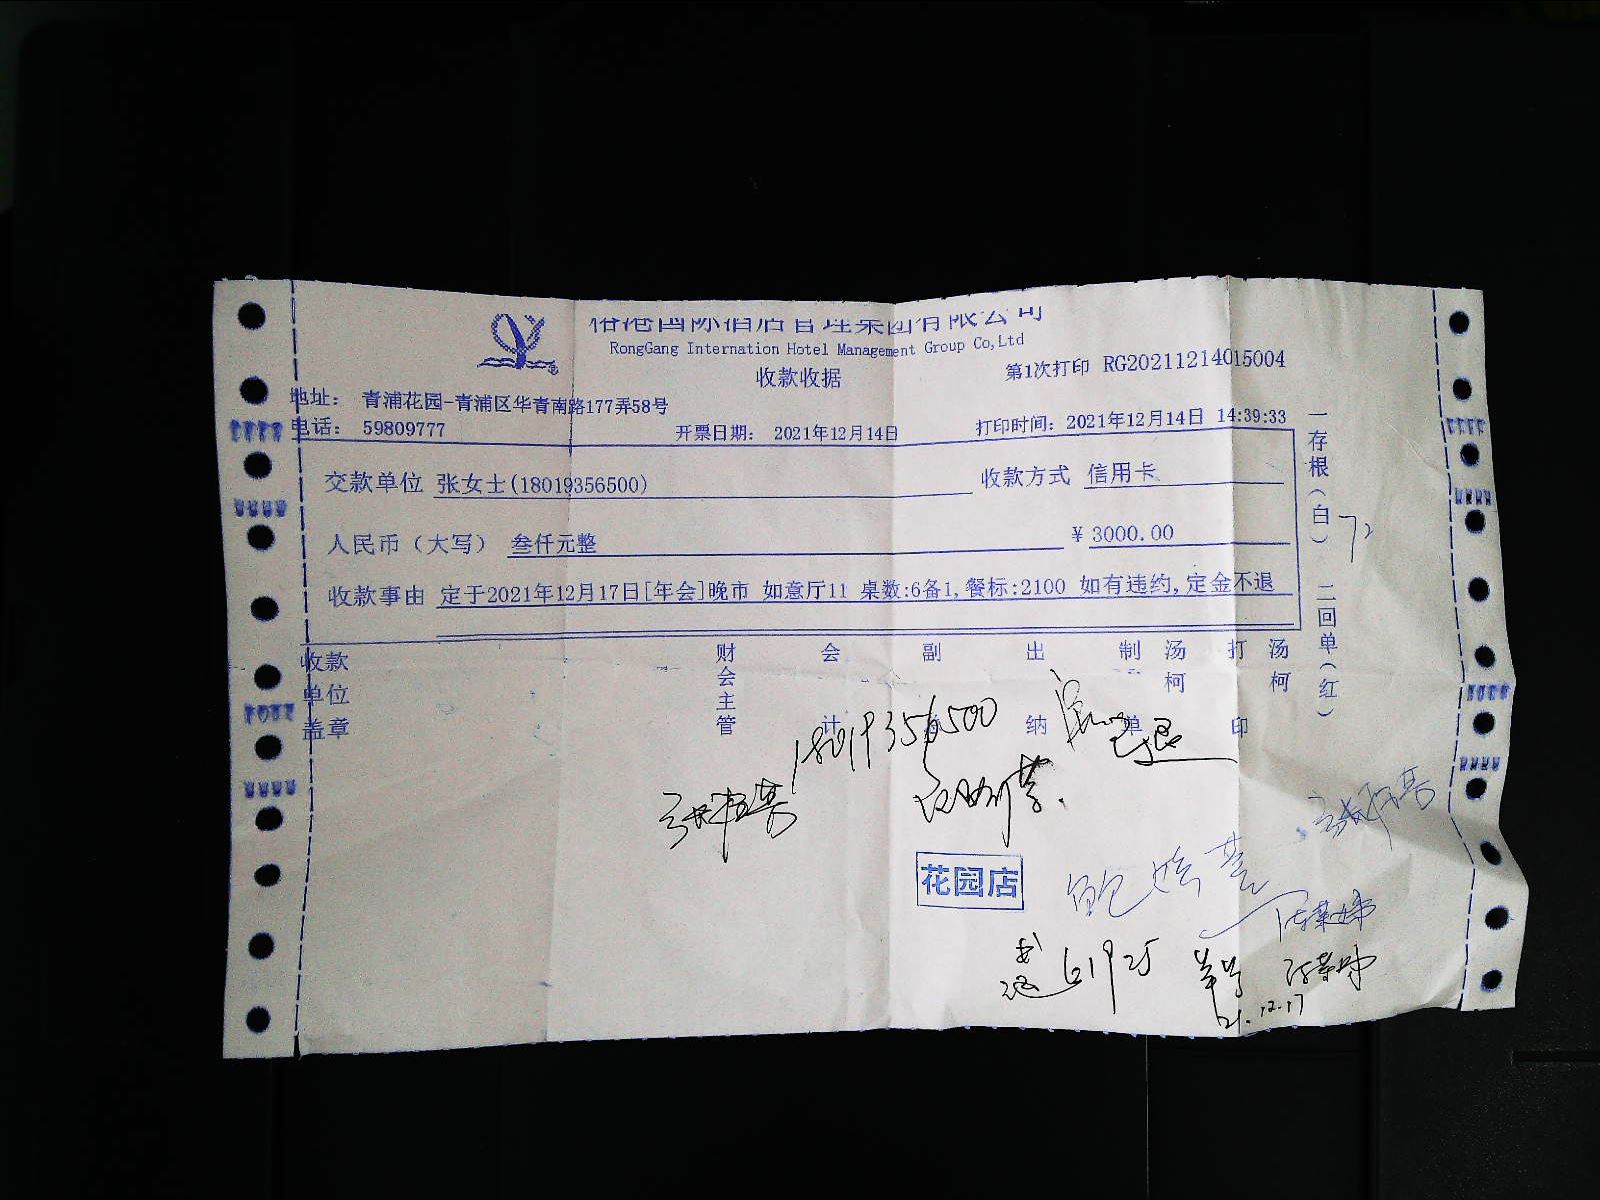 国际酒店管理集团有限公司
RongGang Internation Hotel Management Group Co,Ltd
收款收据
第1次打印 RG20211214015004
地址： 青浦花园-青浦区华青南路177弄58号
电话： 59809777
开票日期： 2021年12月14日
打印时间：2021年12月14日 14:39:33
交款单位 张女士(18019356500)
收款方式 信用卡
人民币（大写） 叁仟元整
￥3000.00
收款事由 定于2021年12月17日[年会]晚市 如意厅11 桌数:6备1,餐标:2100 如有违约,定金不退
一存根（白） 二回单（红）
72
收款单位盖章
财会主管
会计
副
出纳
制单
汤柯
打印
汤柯
18019356500
已退
花园店
61925
21.12.17